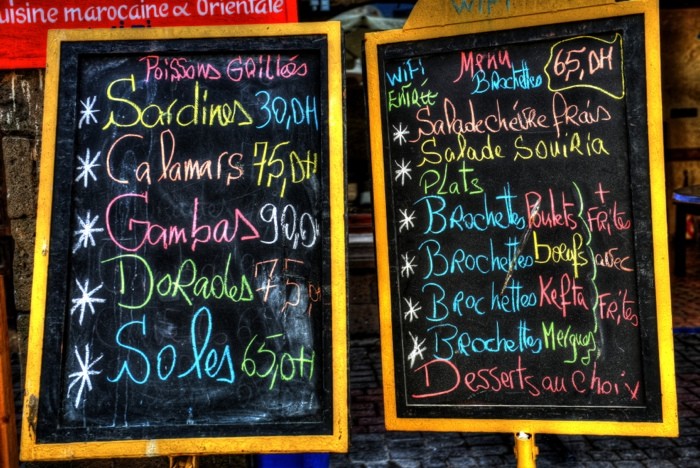 uisine marocaine & Orientale
Poissons Grillés
Sardines 30,DH
Calamars 75,DH
Gambas 90,D
Dorades 75,D
Soles 65,DH
WiFi
WiFi Menu
Brochettes 65,DH
Entrée
Salade chèvre frais
Salade Souiria
Plats
Brochettes Poulets + Frites
Brochettes boeufs avec
Brochettes Kefta Frites
Brochettes Merguez
Desserts au choix